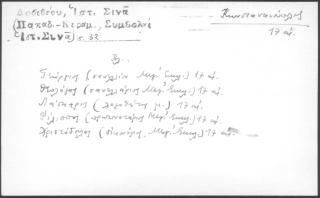 Δοσιθέου, Ἱστ. Σινᾶ
(Παπαδ.-Κεραμ., Συμβολαὶ
Ἱστ. Σινᾶ) σ. 32
Κωνσταντινούπολις
17 αἰ.
Γεώργιος (σακελλίου Μεγ. Ἐκκλ.) 17 αἰ.
Θεολόγος (σακελλάριος Μεγ. Ἐκκλ.) 17 αἰ.
Λάσκαρις (λογοθέτης μ.) 17 αἰ.
Φίλιππος (Μεγ. Ἐκκλ.) 17 αἰ.
Χριστόδουλος (οἰκονόμος Μεγ. Ἐκκλ.) 17 αἰ.